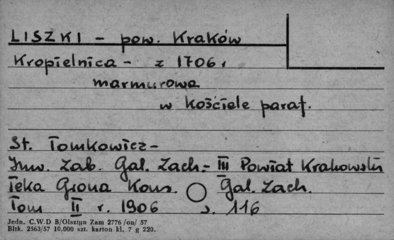 LISZKI - pow. Kraków
Kropielnica - z 1706 r
marmurowa
w kościele paraf.
St. Tomkowicz -
Inw. Zab. Gal. Zach. - III Powiat Krakowski
Teka Grona Kons. Gal. Zach.
Tom II r. 1906 s. 116
Jedn. C.W.D B/Olsztyn Zam 2776/on/ 57
Bltk. 2563/57 10,000 szt. karton kl. 7 g 220.